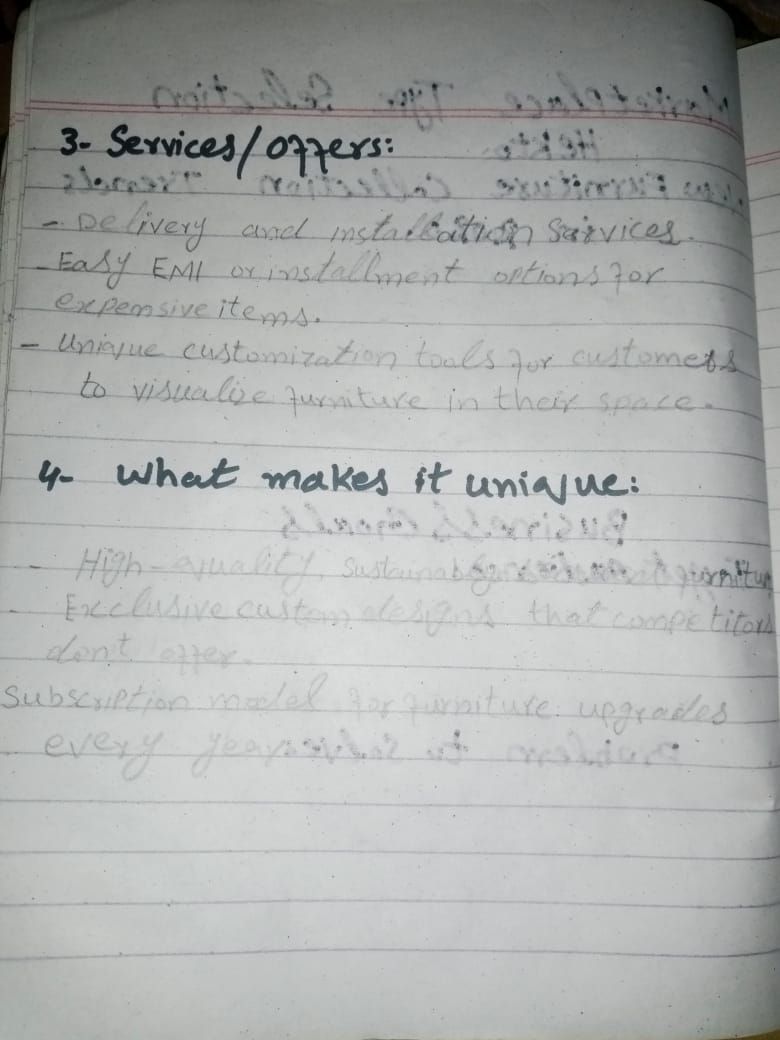 3- Services/offers:
- Delivery and installation Sairvices.
- Easy EMI or installment options for
expensive items.
- Unique customization tools for customers
to visualize furniture in their space.
4- What makes it unique:
- High-quality, Sustainable furniture
- Exclusive custom designs that competitors
don't offer.
Subscription model for furniture upgrades
every year